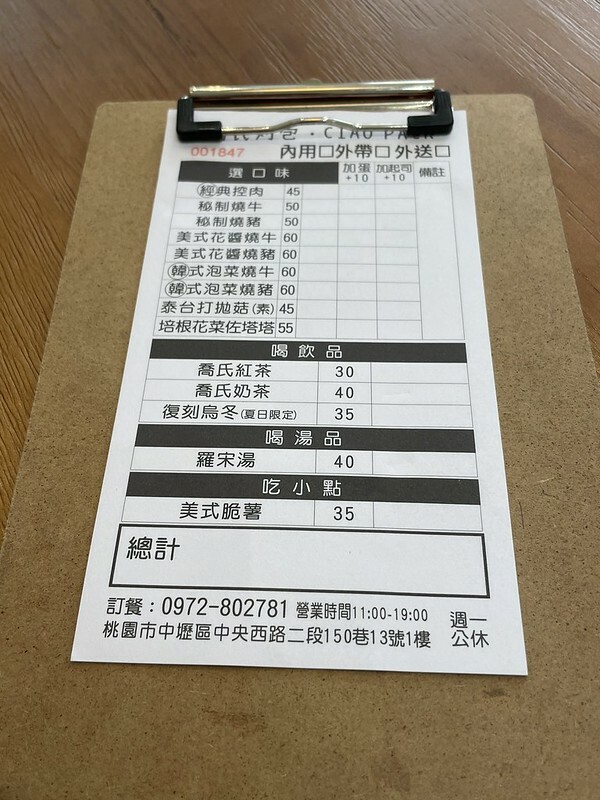 包・CIAO PACK
001847 內用□外帶□外送□
選口味 加蛋+10 加起司+10 備註
經典控肉 45
秘制燒牛 50
秘制燒豬 50
美式花醬燒牛 60
美式花醬燒豬 60
韓式泡菜燒牛 60
韓式泡菜燒豬 60
泰台打拋菇(素) 45
培根花菜佐塔塔 55
喝飲品
喬氏紅茶 30
喬氏奶茶 40
復刻烏冬(夏日限定) 35
喝湯品
羅宋湯 40
吃小點
美式脆薯 35
總計
訂餐：0972-802781 營業時間11:00-19:00 週一
桃園市中壢區中央西路二段150巷13號1樓 公休